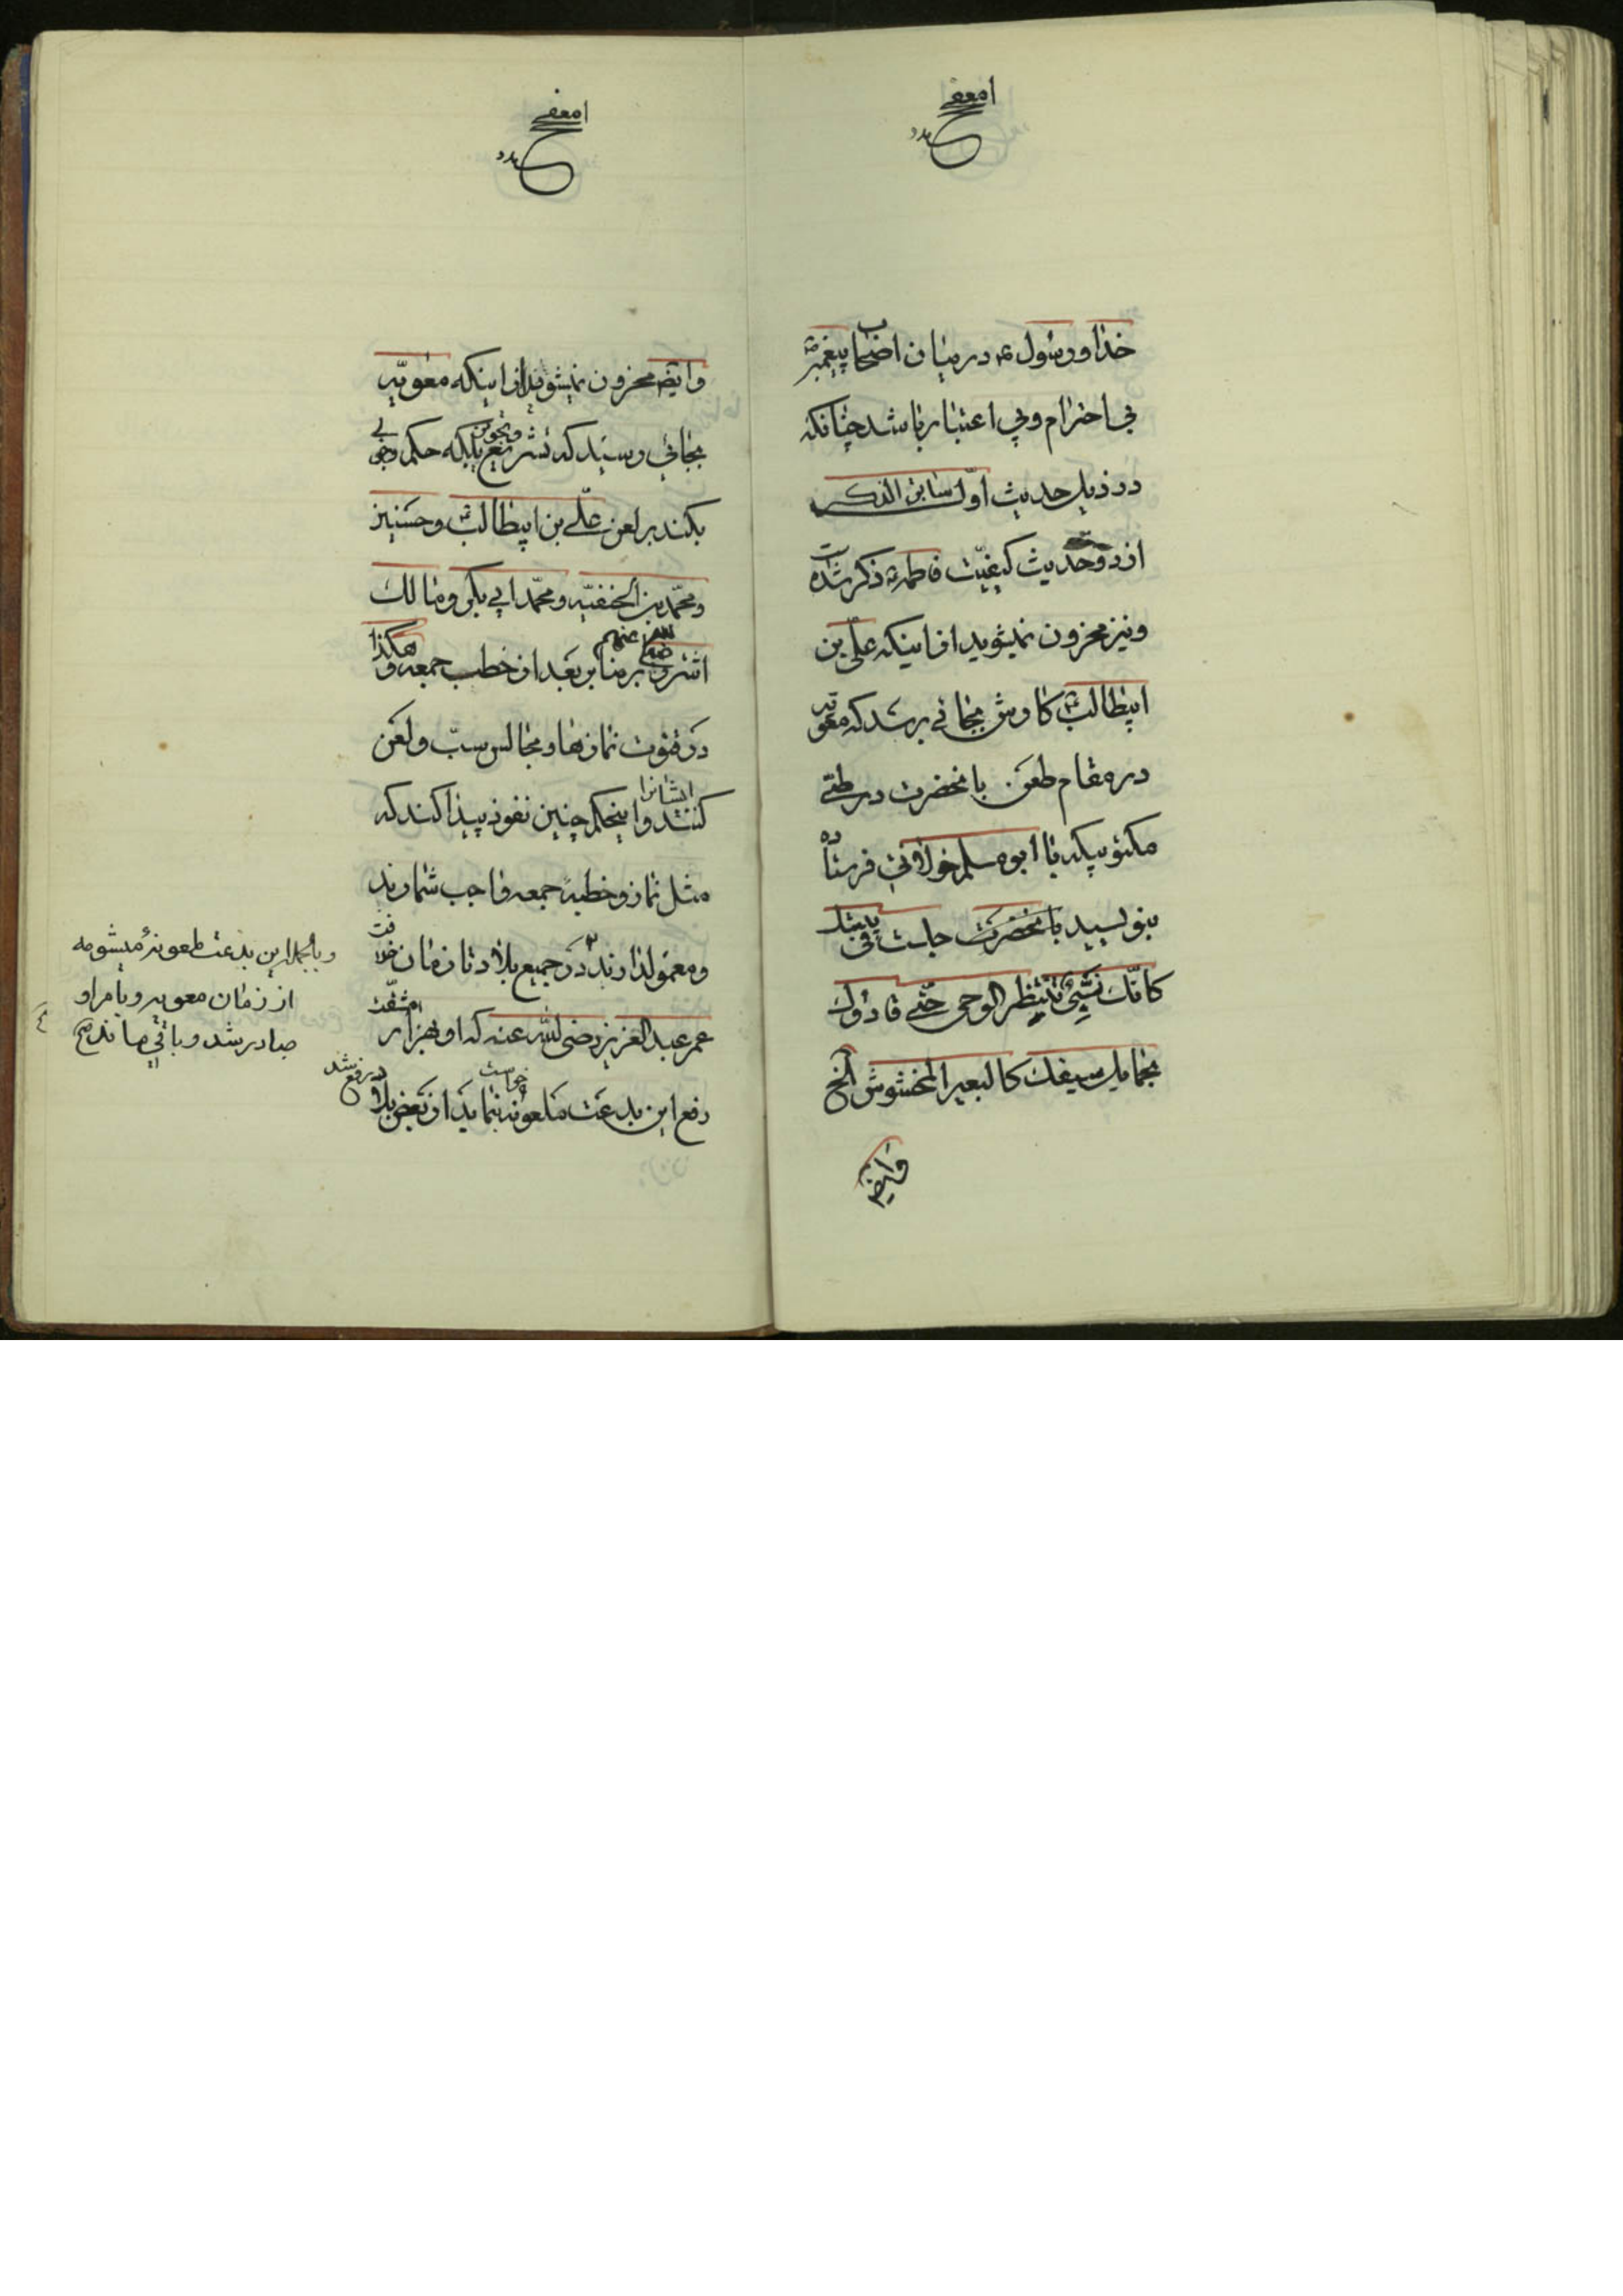 خدا و رسول ص در میان اصحاب پیغمبر ص
بی احترام و بی اعتبار باشد چنانکه
در ذیل حدیث اوّل سابق الذکر
از دو حدیث کیفیّت فاطمه ع ذکر شده است
و نیز محزون نمیشوید از اینکه علّی بن
ابیطالب ع کارش بجائی برسد که معویه
در مقام طعن بآنحضرت در طیّ
مکتوبیکه با ابو مسلم خولانی فرستاده
بنویسید بآنحضرت جلست فی بیتک
کانّک نبیّ تنتظر الوحی حتّی قادوک
بحمایل سیفک کالبعیر المخشوش الخ
وایضا
وایضا محزون نمیشوید از اینکه معویّه
بجائی رسید که تشریع بلکه حکم وجوبی
بکند بر لعن علّی بن ابیطالب ع و حسنین
و محمّد بن الحنفیّه و محمّد ابی بکر و مالک
اشتر رضی الله عنهم بر منابر بعد از خطب جمعه و هکذا
در قنوت نمازها و مجالس سبّ و لعن
کنند ایشانرا و اینحکم چنین نفوذ پیدا کند که
مثل نماز و خطبهٔ جمعه واجب شمارند
و معمول دارند در جمیع بلاد تا زمان خلافت
عمر عبد العزیز رضی الله عنه که او بهزار مشقّت
رفع این بدعت ملعونه خواست نماید از بعض بلاد رفع شد
و بالجمله این بدعت ملعونهٔ میشومه
از زمان معویه و بامر او
صادر شد و باقی ماند صح